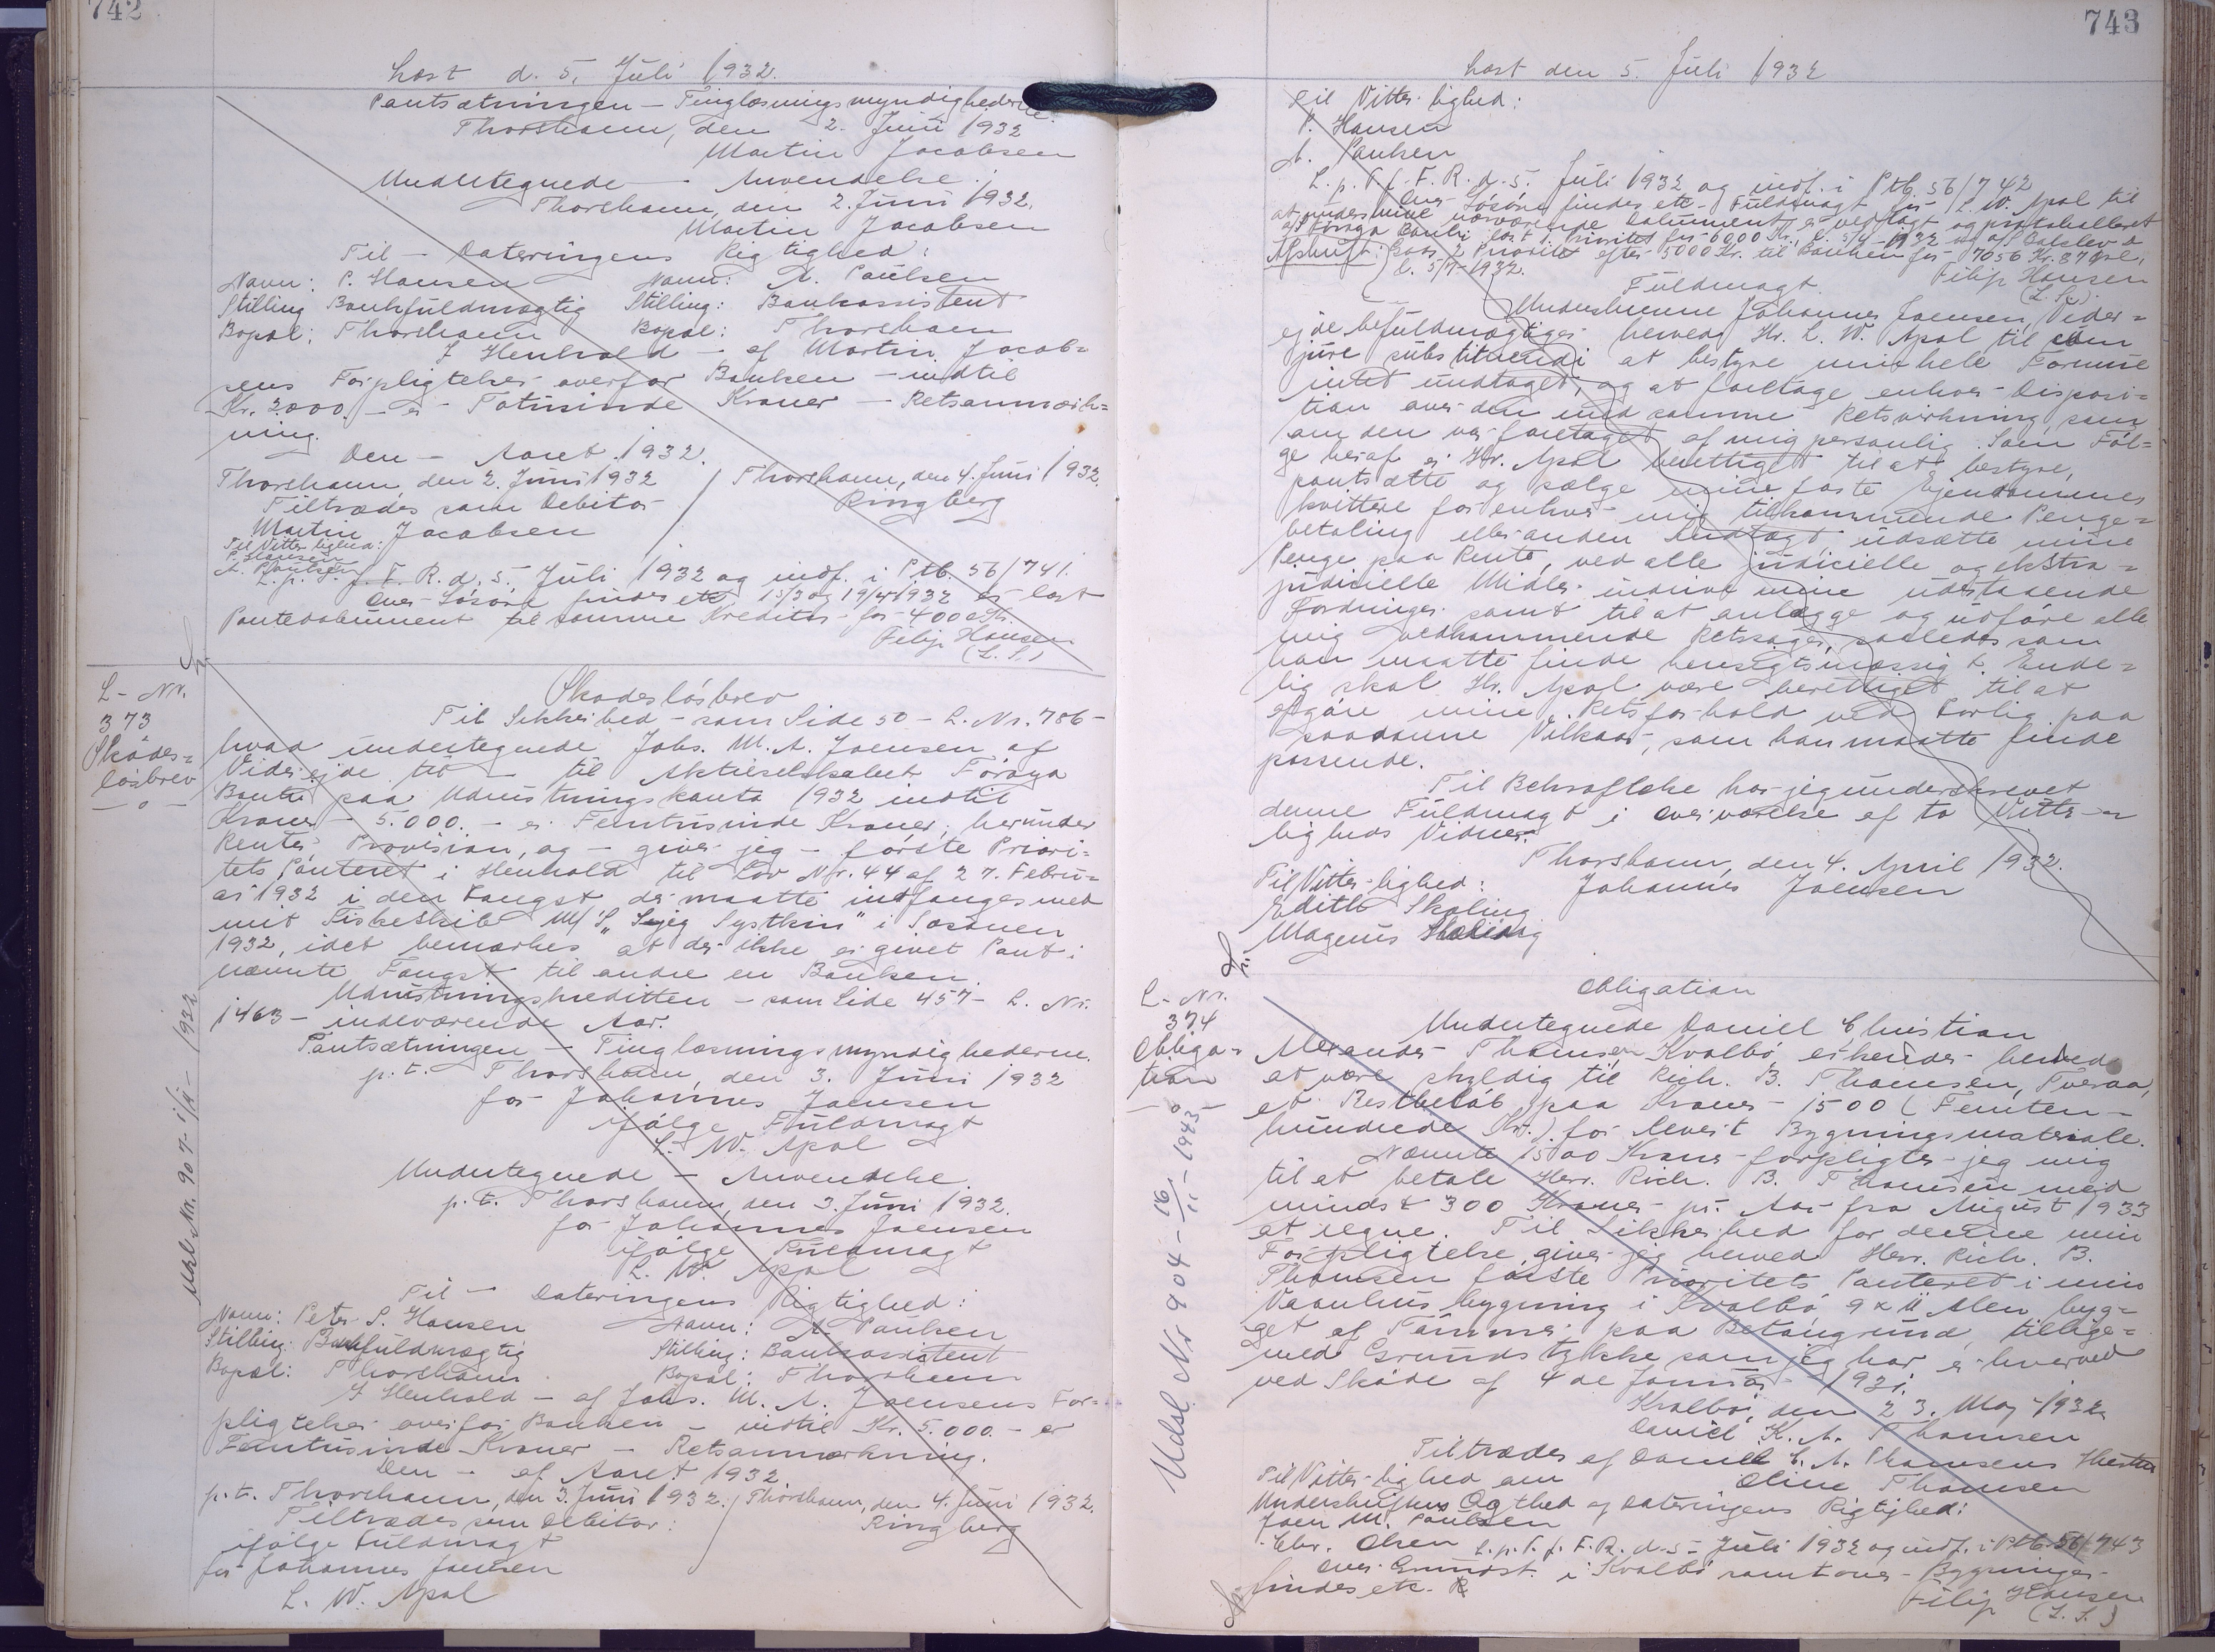 742
Læst d. 5. Juli 1932.
Pantsætningen — Tinglæsningsmyndighederne.
Thorshavn, den 2. Juni 1932
Martin Jacobsen
Undertegnede — Anvendelse.
Thorshavn, den 2. Juni 1932.
Martin Jacobsen
Til — Dateringens Rigtighed:
Navn: P. Hansen Navn: A. Paulsen
Stilling Bankfuldmægtig Stilling: Bankassistent
Bopæl: Thorshavn Bopæl: Thorshavn
I Henhold — af Martin Jacob=
sens Forpligtelser overfor Banken — indtil
Kr. 2000 — er — Totusinde Kroner — Retsanmærk=
ning.
Den — Aaret 1932.
Thorshavn, den 2. Juni 1932 / Thorshavn, den 4. Juni 1932.
Tiltrædes som Debitor Ringberg
Martin Jacobsen
Til Vitterlighed:
P. Hansen
A. Paulsen
L. p. T. f. F. R. d. 5. Juli 1932 og indf. i Ptb. 56/741.
Over Løsøre findes etc 15/3 og 19/4 1932 er læst
Pantedokument til samme Kreditor for 4000 Kr.
Filip Hansen
(L. S.)
L- Nr.
373
Skades=
løsbrev
— o —
Skadesløsbrev
Til Sikkerhed — som Side 50 — L. Nr. 786 —
hvad undertegnede Johs. M. A. Joensen af
Viderejde til — til Aktieselskabet Føroya
Banki paa Udrustningskonto 1932 indtil
Kroner — 5.000. — er Femtusinde Kroner, herunder
Renter Provision, og — giver jeg — første Priori=
tets Panteret i Henhold til Lov Nr. 44 af 27. Febru=
ar 1932 i den Fangst, der maatte indfanges med
mit Fiskeskib M/S „Sejg Systkin" i Sæsonen
1932, idet bemærkes at der ikke er givet Pant i
nævnte Fangst til andre en Banken.
Udrustningskreditten — som Side 457 — L. Nr.
1463 — indeværende Aar.
Pantsætningen — Tinglæsningsmyndighederne.
p. t. Thorshavn, den 3. Juni 1932
for Johannes Joensen
ifølge Fuldmagt
L. W. Apol
Undertegnede — Anvendelse.
p. t. Thorshavn, den 3. Juni 1932.
for Johannes Joensen
ifølge Fuldmagt
L. W. Apol
Til — Dateringens Rigtighed:
Navn: Peter S. Hansen Navn: A. Paulsen
Stilling: Bankfuldmægtig Stilling: Bankassistent
Bopæl: Thorshavn Bopæl: Thorshavn
I Henhold — af Johs. M. A. Joensens For=
pligtelser overfor Banken — indtil Kr. 5.000. — er
Femtusinde Kroner — Retsanmærkning.
Den — af Aaret 1932.
p. t. Thorshavn, den 3. Juni 1932. / Thorshavn, den 4. Juni 1932.
Tiltrædes som Debitor: Ringberg
ifølge Fuldmagt
for Johannes Joensen
L. W. Apol
Udsl. Nr. 907 - 1/11 - 1932
743
Læst den 5. Juli 1932
Til Vitterlighed:
P. Hansen
A. Paulsen
L. p. T. f. F. R. d. 5. Juli 1932 og indf. i Ptb. 56/742
Over Løsøre findes etc. Fuldmagt for L. W. Apol til
at underskrive nærværende Dokument, er vedlagt og protokolleret
af Føroya Banki læst 1. Prioritet for 6000 Kr.,
Afskrift: 2 Prioritet efter 5000 Kr. til Banken for 7056 Kr. 87
d. 5/7-1932.
Filip Hansen
(L. S.)
Fuldmagt.
Underskrevne Johannes Joensen, Vider=
ejde befuldmægtiger herved Hr. L. W. Apol til cum
jure substituendi at bestyre min hele Formue
intet undtaget, og at foretage enhver Disposi=
tion over den med samme Retsvirkning, som
om den var foretaget af mig personlig. Som Føl=
ge heraf er Hr. Apol berettiget til at bestyre,
pantsætte og sælge mine faste Ejendomme,
kvittere for enhver mig tilkommende Penge=
betaling eller anden Indtægt, udsætte mine
Penge paa Rente, ved alle judicielle og ekstra=
judicielle Midler inddrive mine udestaaende
Fordringer samt til at anlægge og udføre alle
mig vedkommende Retssager, saaledes som
han maatte finde hensigtsmæssigt. Ende=
lig skal Hr. Apol være berettiget til at
afgøre mine Retsforhold ved Forlig paa
saadanne Vilkaar, som han maatte finde
passende.
Til Bekræftelse har jeg underskrevet
denne Fuldmagt i Overværelse af to Vitter-
ligheds Vidner.
Thorshavn, den 4. April 1932.
Til Vitterlighed: Johannes Joensen
Edith Skaling
Magnus Skaling
L- Nr.
374
Obliga=
tion
— o —
Obligation
Undertegnede Daniel Christian
Alexander Thomsen Kvalbø, erkender herved
at være skyldig til Rich. B. Thomsen, Tveraa,
et Restbeløb paa Kroner — 1500 (Femten-
hundrede Kr.) for leveret Bygningsmateriale.
Nævnte 1500 Kroner forpligter jeg mig
til at betale Herr. Rich. B. Thomsen med
mindst 300 Kroner pr. Aar fra August 1933
at regne. Til Sikkerhed for denne min
Forpligtelse giver jeg herved Herr. Rich. B.
Thomsen første Prioritets Panteret i min
Vaanhusbygning i Kvalbø, 9 x 11 Alen, byg=
get af Tømmer paa Betongrund, tillige=
med Grundstykke som jeg har erhvervet
ved Skøde af 4de Januar 1921.
Kvalbø, den 23. Maj 1932
Daniel K. A. Thomsen
Tiltrædes af Daniel C. A. Thomsens Hustru
Til Vitterlighed om Oline Thomsen
Underskriftens Ægthed og Dateringens Rigtighed:
Joen M. Paulsen
Chr. Olsen L. p. T. f. F. R. d. 5. Juli 1932 og indf. i Ptb. 56/743
Over Grundst. i Kvalbø samt over Bygninger
findes etc.
Filip Hansen
(L. S.)
Udsl. Nr 904 - 16/11 - 1943